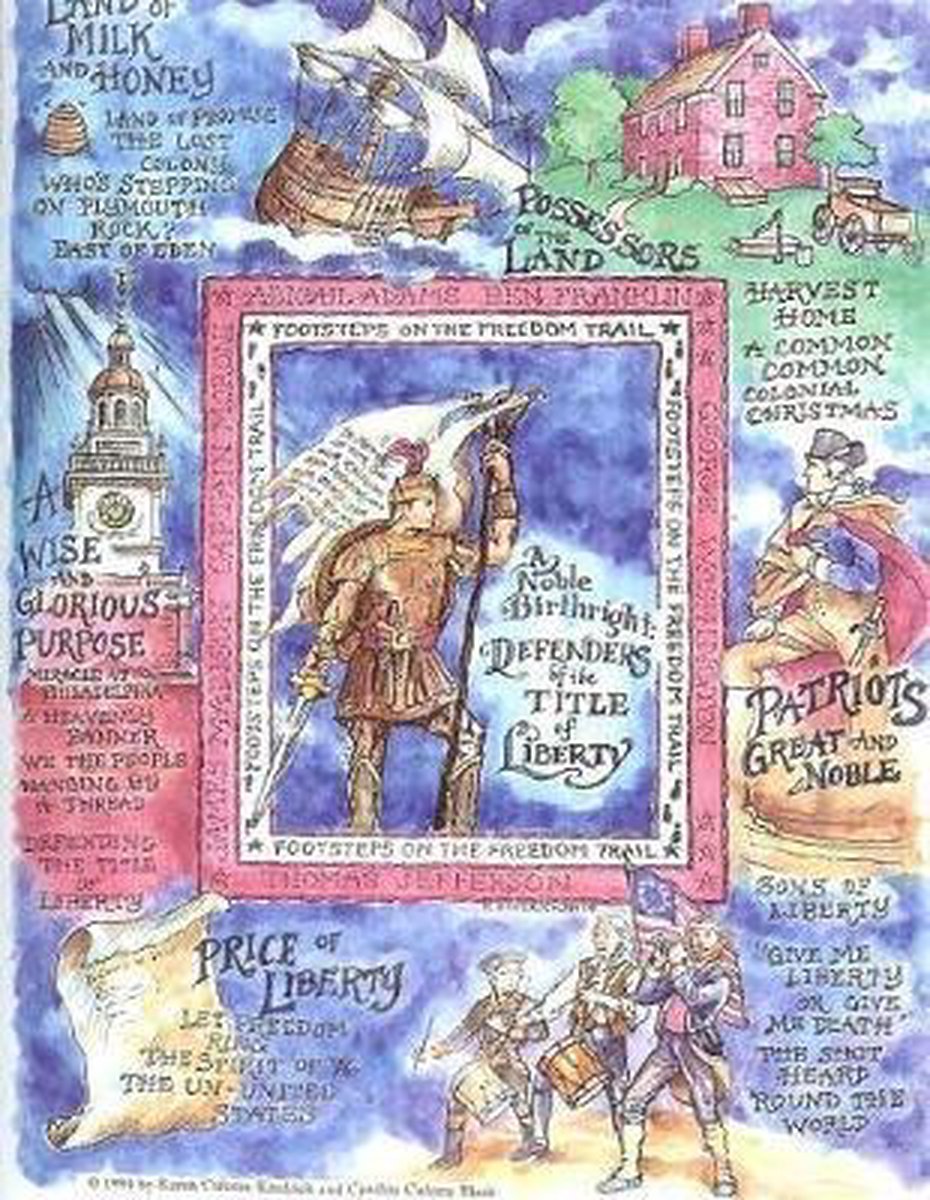 LAND OF
MILK
AND HONEY
LAND OF PROMISE
THE LOST
COLONY
WHO'S STEPPING
ON PLYMOUTH
ROCK?
EAST OF EDEN
POSSESSORS
OF THE
LAND
HARVEST
HOME
A COMMON
COMMON
COLONIAL
CHRISTMAS
ABIGAIL ADAMS BEN FRANKLIN
FOOTSTEPS ON THE FREEDOM TRAIL
FOOTSTEPS ON THE FREEDOM TRAIL
FOOTSTEPS ON THE FREEDOM TRAIL
GEORGE WASHINGTON
JAMES MADISON CAPTAIN MORONI
A
WISE
AND
GLORIOUS
PURPOSE
MIRACLE AT
PHILADELPHIA
A HEAVENLY
BANNER
WE THE PEOPLE
HANGING BY
A THREAD
DEFENDING
THE TITLE
OF
LIBERTY
A
Noble
Birthright:
DEFENDERS
of the
TITLE
of
LIBERTY
PATRIOTS
GREAT AND
NOBLE
FOOTSTEPS ON THE FREEDOM TRAIL
THOMAS JEFFERSON
SONS OF
LIBERTY
"GIVE ME
LIBERTY
OR GIVE
ME DEATH"
THE SHOT
HEARD
'ROUND THE
WORLD
PRICE OF
LIBERTY
LET FREEDOM
RING
THE SPIRIT OF '76
THE UN-UNITED
STATES
© 1994 by Karen and Cynthia